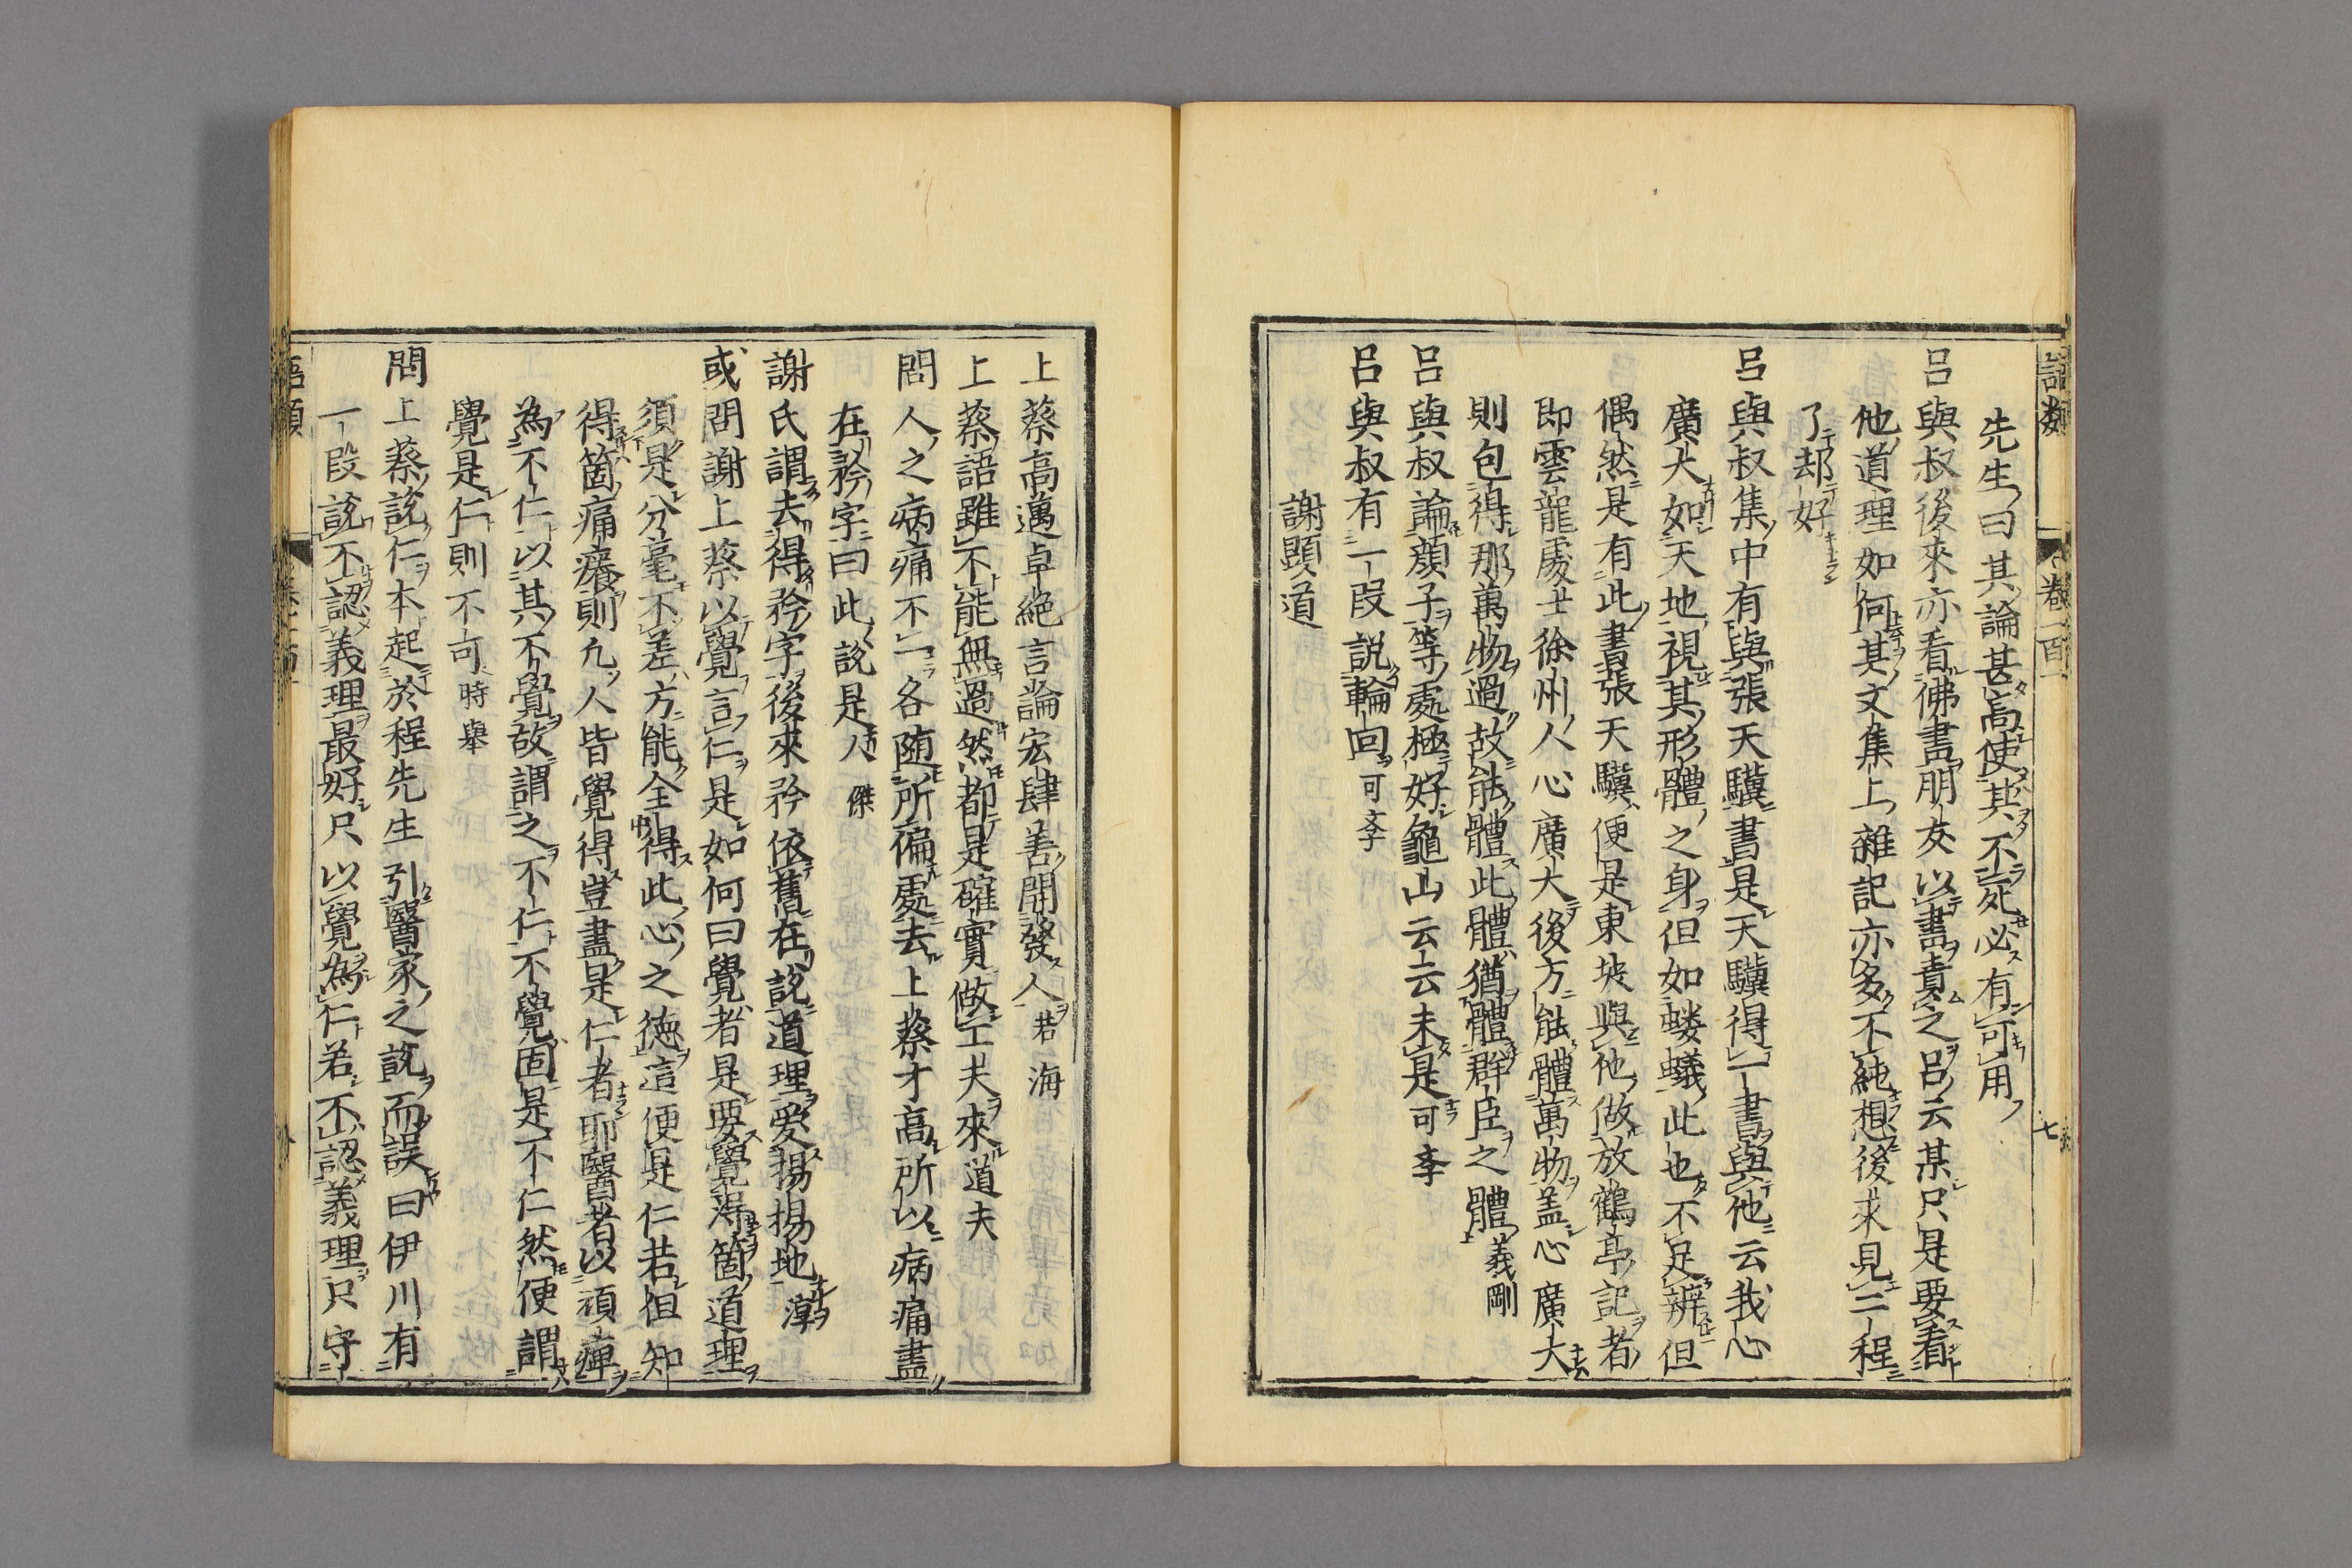 語類
卷一百一
七
先生曰其論甚高使其不死必有可用
呂與叔後來亦看佛書朋友以書責之呂云某只是要看
他道理如何其文集上雜記亦多不純想後來見二程
了却好
呂與叔集中有與張天驥書是天驥得一書與他云我心
廣大如天地視其形體之身但如螻蟻此也不足辨但
偶然是有此書張天驥便是東坡與他做放鶴亭記者
即雲龍處士徐州人心廣大後方能體萬物盖心廣大
則包得那萬物過故能體此體猶體群臣之體義剛
呂與叔論顔子等處極好龜山云云未是可李
呂與叔有一叚説輪回可李
謝顕道
上蔡高邁卓絶言論宏肆善開發人若海
上蔡語雖不能無過然都是確實做工夫來道夫
問人之病痛不一各随所偏處去上蔡才高所以病痛盡
在矜字曰此説是人傑
謝氏謂去得矜字後來矜依舊在説道理愛揚揚地淳
或問謝上蔡以覺言仁是如何曰覺者是要覺得箇道理
須是分毫不差方能全得此心之德這便是仁若但知
得箇痛癢則凢人皆覺得豈盡是仁者耶醫者以頑痺
為不仁以其不覺故謂之不仁不覺固是不仁然便謂
覺是仁則不可時舉
問上蔡説仁本起於程先生引醫家之説而誤曰伊川有
一叚説不認義理最好只以覺為仁若不認義理只守